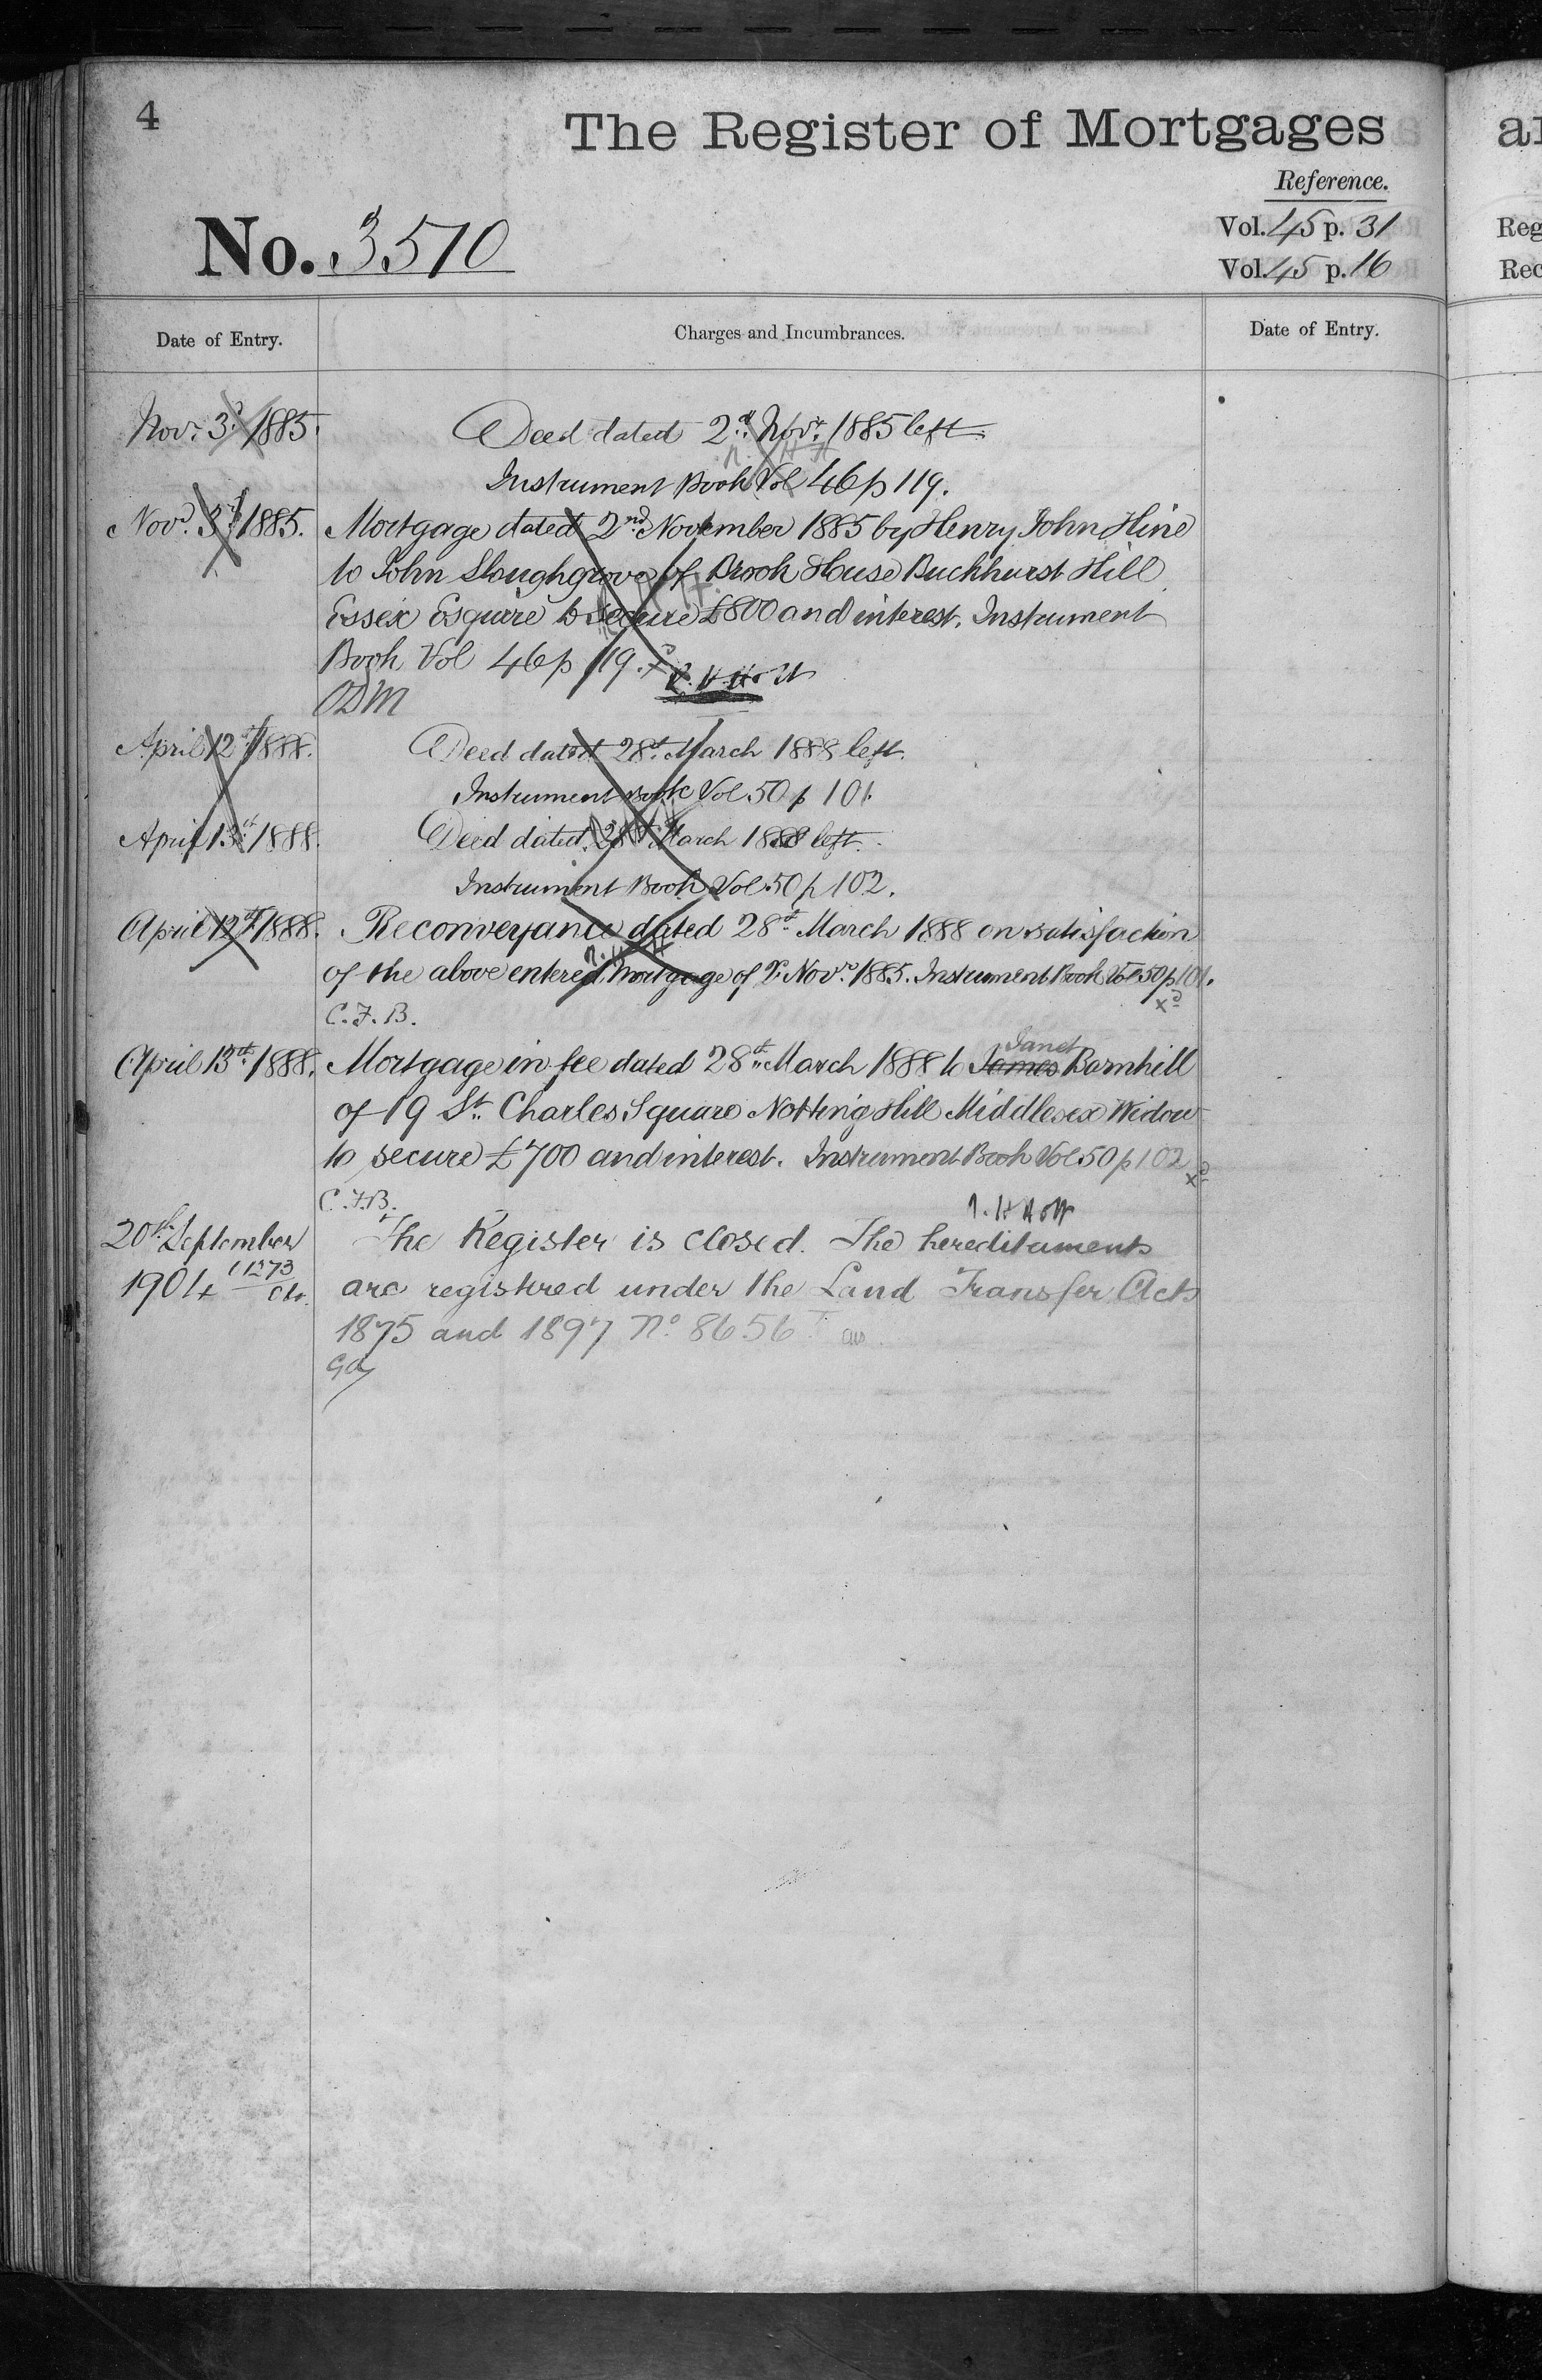 4
The Register of Mortgages
Reference.
Vol. 45 p. 31
No. 3510
Vol. 45 p. 16
Date of Entry.
Charges and Incumbrances.
Date of Entry.
Novr. 3d 1885.
Deed dated 2d Novr. 1885 left
Instrument Book Vol 46 p 119.
Novr. 3d 1885.
Mortgage dated 2nd November 1885 by Henry John Hine
to John Sloughgrove of Brook House Buckhurst Hill
Essex Esquire to secure £800 and interest. Instrument
Book Vol 46 p 119. xd
ODM
April 12th 1888.
Deed dated 28th March 1888 left.
Instrument Book Vol. 50 p 101.
April 13th 1888.
Deed dated 28th March 1888 left.
Instrument Book Vol. 50 p 102.
April 12th 1888.
Reconveyance dated 28th March 1888 on satisfaction
of the above entered mortgage of 2 Novr. 1885. Instrument Book Vol 50 p 101.
xd
C.F.B.
Janet
April 13th 1888.
Mortgage in fee dated 28th March 1888 to James Barnhill
of 19 St. Charles Square Notting Hill Middlesex Widow
to secure £700 and interest. Instrument Book Vol 50 p 102
xd
C.F.B.
20th September
The Register is closed. The hereditaments
1904 11273/04
are registered under the Land Transfer Acts
1875 and 1897 No. 8656